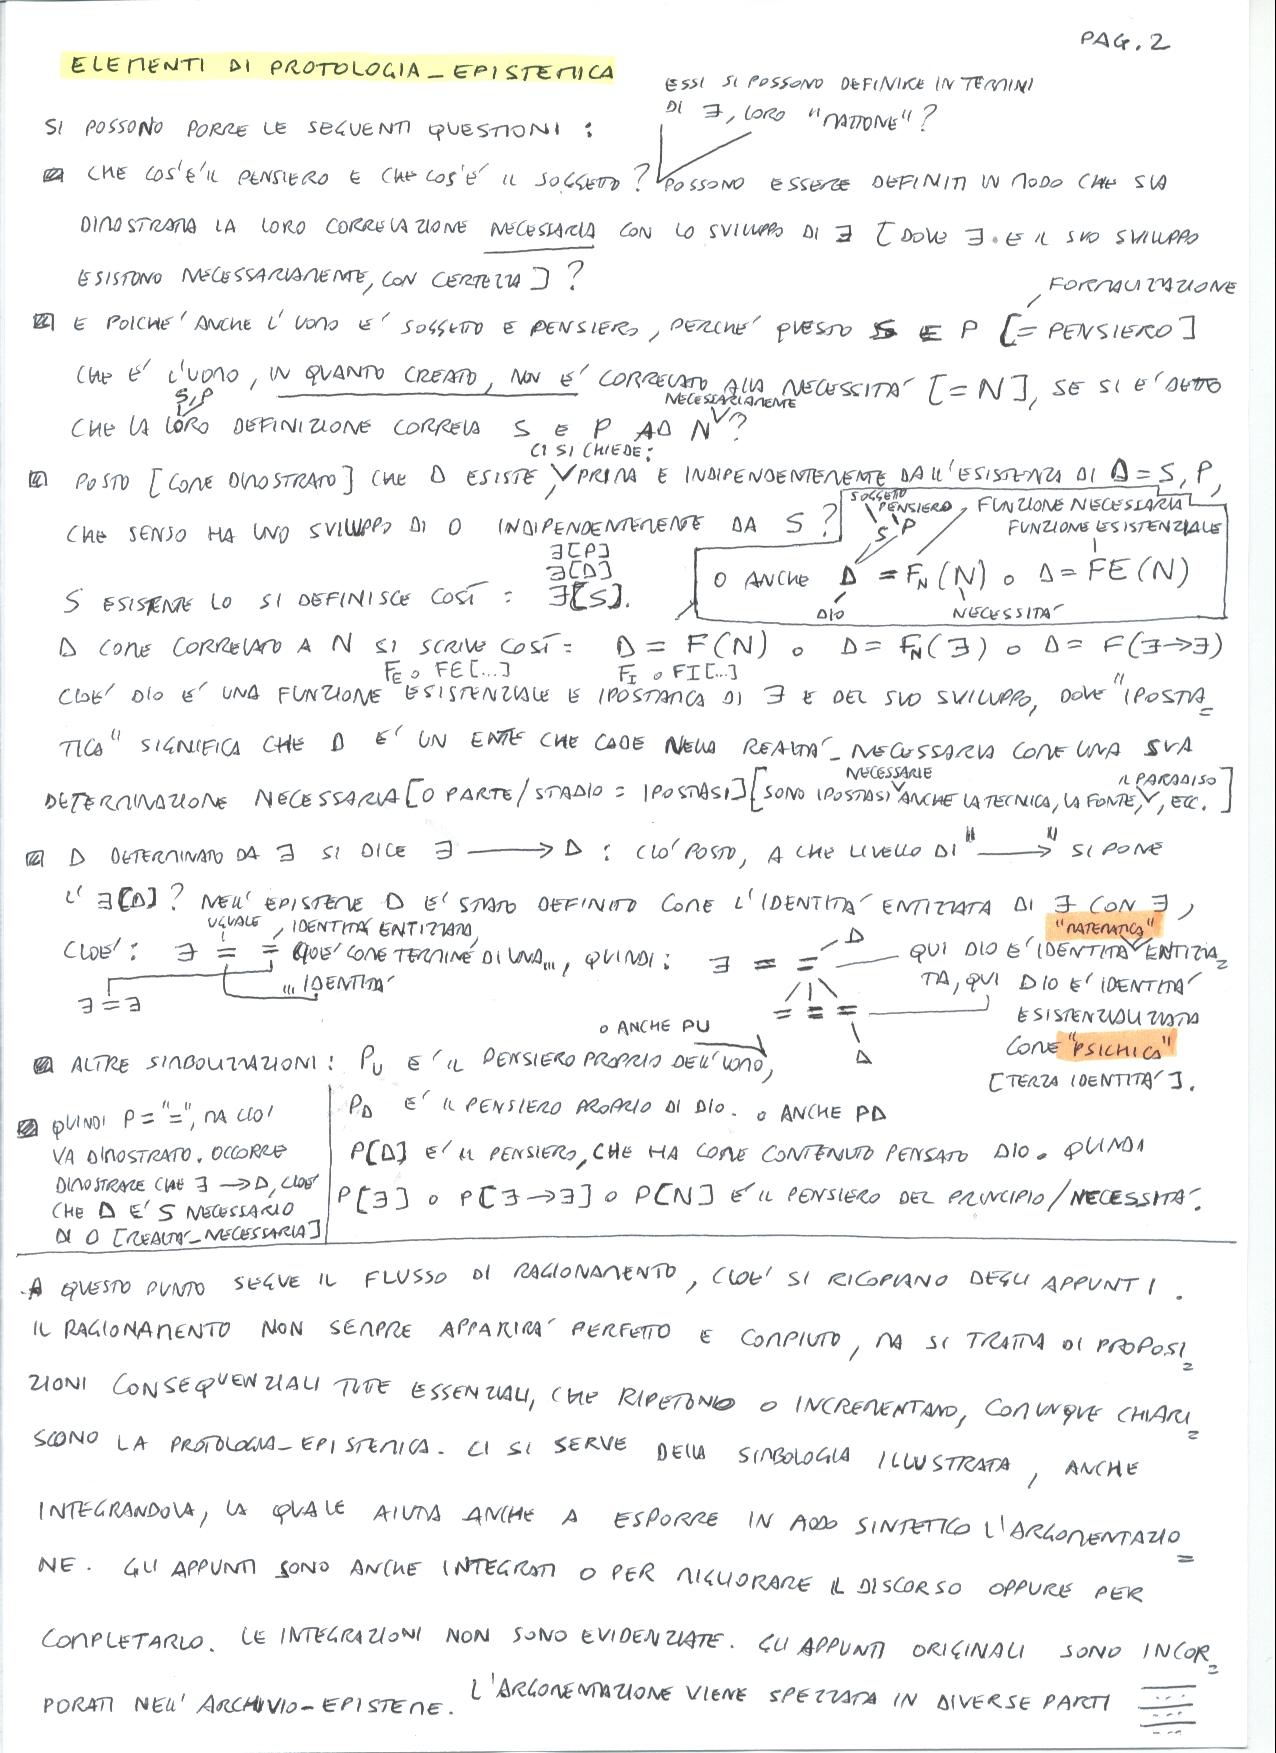 PAG. 2
ELEMENTI DI PROTOLOGIA_EPISTEMICA
ESSI SI POSSONO DEFINIRE IN TERMINI
DI ∃, LORO "MATTONE"?
SI POSSONO PORRE LE SEGUENTI QUESTIONI :
CHE COS'E' IL PENSIERO E CHE COS'E' IL SOGGETTO ? POSSONO ESSERE DEFINITI IN MODO CHE SIA
DIMOSTRATA LA LORO CORRELAZIONE NECESSARIA CON LO SVILUPPO DI ∃ [DOVE ∃ E IL SUO SVILUPPO
ESISTONO NECESSARIAMENTE, CON CERTEZZA] ?
FORMALIZZAZIONE
E POICHE' ANCHE L'UOMO E' SOGGETTO E PENSIERO, PERCHE' QUESTO S E P [= PENSIERO]
CHE E' L'UOMO, IN QUANTO CREATO, NON E' CORRELATO ALLA NECESSITA' [=N], SE SI E' DETTO
S,P
NECESSARIAMENTE
CHE LA LORO DEFINIZIONE CORRELA S E P AD N ?
CI SI CHIEDE:
POSTO [COME DIMOSTRATO] CHE D ESISTE, PRIMA E INDIPENDENTEMENTE DALL'ESISTENZA DI D = S, P,
CHE SENSO HA UNO SVILUPPO DI O INDIPENDENTEMENTE DA S ?
SOGGETTO
PENSIERO
FUNZIONE NECESSARIA
FUNZIONE ESISTENZIALE
S,P
O ANCHE D = FN (N) O D = FE (N)
DIO
NECESSITA'
∃[P]
∃[D]
S ESISTENTE LO SI DEFINISCE COSI : ∃[S].
D COME CORRELATO A N SI SCRIVE COSI : D = F(N) O D = FN(∃) O D = F(∃→∃)
FE O FE[...] FI O FI[...]
CIOE' DIO E' UNA FUNZIONE ESISTENZIALE E IPOSTATICA DI ∃ E DEL SUO SVILUPPO, DOVE "IPOSTA=
TICA" SIGNIFICA CHE D E' UN ENTE CHE CADE NELLA REALTA'_NECESSARIA COME UNA SUA
NECESSARIE IL PARADISO
DETERMINAZIONE NECESSARIA [O PARTE/STADIO = IPOSTASI] [SONO IPOSTASI ANCHE LA TECNICA, LA FONTE, , ETC.]
D DETERMINATO DA ∃ SI DICE ∃ ⟶ D : CIO' POSTO, A CHE LIVELLO DI "⟶" SI PONE
L' ∃[D] ? NELL'EPISTEME D E' STATO DEFINITO COME L'IDENTITA' ENTIZZATA DI ∃ CON ∃,
UGUALE IDENTITA' ENTIZZATA,
CIOE' : ∃ = = CIOE' COME TERMINE DI UNA..., QUINDI : ∃ = =
... IDENTITA'
∃ = ∃
D
= = =
D
"MATEMATICA"
QUI DIO E' IDENTITA' ENTIZZA=
TA, QUI DIO E' IDENTITA'
ESISTENZIALIZZATA
COME "PSICHICA"
[TERZA IDENTITA'].
O ANCHE PU
ALTRE SIMBOLIZZAZIONI : PU E' IL PENSIERO PROPRIO DELL'UOMO,
PD E' IL PENSIERO PROPRIO DI DIO. O ANCHE PD
P[D] E' IL PENSIERO, CHE HA COME CONTENUTO PENSATO DIO. QUINDI
P[∃] O P[∃→∃] O P[N] E' IL PENSIERO DEL PRINCIPIO/NECESSITA'.
QUINDI P = "=", MA CIO'
VA DIMOSTRATO. OCCORRE
DIMOSTRARE CHE ∃ → D, CIOE'
CHE D E' S NECESSARIO
DI O [REALTA'_NECESSARIA]
A QUESTO PUNTO SEGUE IL FLUSSO DI RAGIONAMENTO, CIOE' SI RICOPIANO DEGLI APPUNTI.
IL RAGIONAMENTO NON SEMPRE APPARIRA' PERFETTO E COMPIUTO, MA SI TRATTA DI PROPOSI=
ZIONI CONSEQUENZIALI TUTTE ESSENZIALI, CHE RIPETONO O INCREMENTANO, COMUNQUE CHIARI=
SCONO LA PROTOLOGIA_EPISTEMICA. CI SI SERVE DELLA SIMBOLOGIA ILLUSTRATA, ANCHE
INTEGRANDOLA, LA QUALE AIUTA ANCHE A ESPORRE IN MODO SINTETICO L'ARGOMENTAZIO=
NE. GLI APPUNTI SONO ANCHE INTEGRATI O PER MIGLIORARE IL DISCORSO OPPURE PER
COMPLETARLO. LE INTEGRAZIONI NON SONO EVIDENZIATE. GLI APPUNTI ORIGINALI SONO INCOR=
PORATI NELL'ARCHIVIO_EPISTEME. L'ARGOMENTAZIONE VIENE SPEZZATA IN DIVERSE PARTI